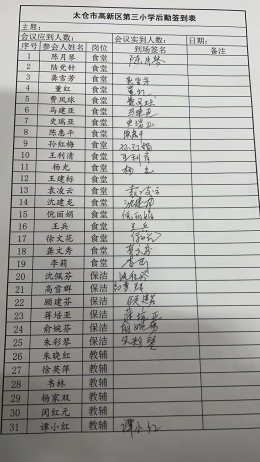 太仓市高新区第三小学后勤签到表
主题：
会议应到人数： 会议实到人数： 日期：
序号 参会人姓名 岗位 到场签名 备注
1 陈月琴 食堂 陈月琴
2 陆党针 食堂
3 龚雪芳 食堂 龚雪芳
4 董红 食堂 董红
5 费凤球 食堂 费凤球
6 马建亚 食堂 马建亚
7 史瑞亚 食堂 史瑞亚
8 陈惠平 食堂 陈惠平
9 孙红梅 食堂 孙红梅
10 王利清 食堂 王利清
11 杨光 食堂 杨光
12 王建标 食堂
13 袁凌云 食堂 袁凌云
14 沈建龙 食堂 沈建龙
15 倪丽娟 食堂 倪丽娟
16 王兵 食堂 王兵
17 徐文花 食堂
18 龚文秀 食堂 龚文秀
19 李莉 食堂 李莉
20 沈佩芬 保洁 沈佩芬
21 高雪群 保洁 高雪群
22 顾建芬 保洁 顾建芬
23 蒋培亚 保洁 蒋培亚
24 俞婉芬 保洁 俞婉芬
25 朱彩琴 保洁 朱彩琴
26 朱晓红 教辅
27 徐英萍 教辅
28 韦林 教辅
29 杨家双 教辅
30 闵红元 教辅
31 谭小红 教辅 谭小红